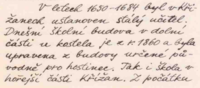 V letech 1650-1684 byl v Kři-
žanech ustanoven stálý učitel.
Dnešní školní budova v dolní
části u kostela je z r. 1860 a byla
upravena z budovy určené pů-
vodně pro hostinec. Tak i škola v
hořejší části Křižan. Z počátku